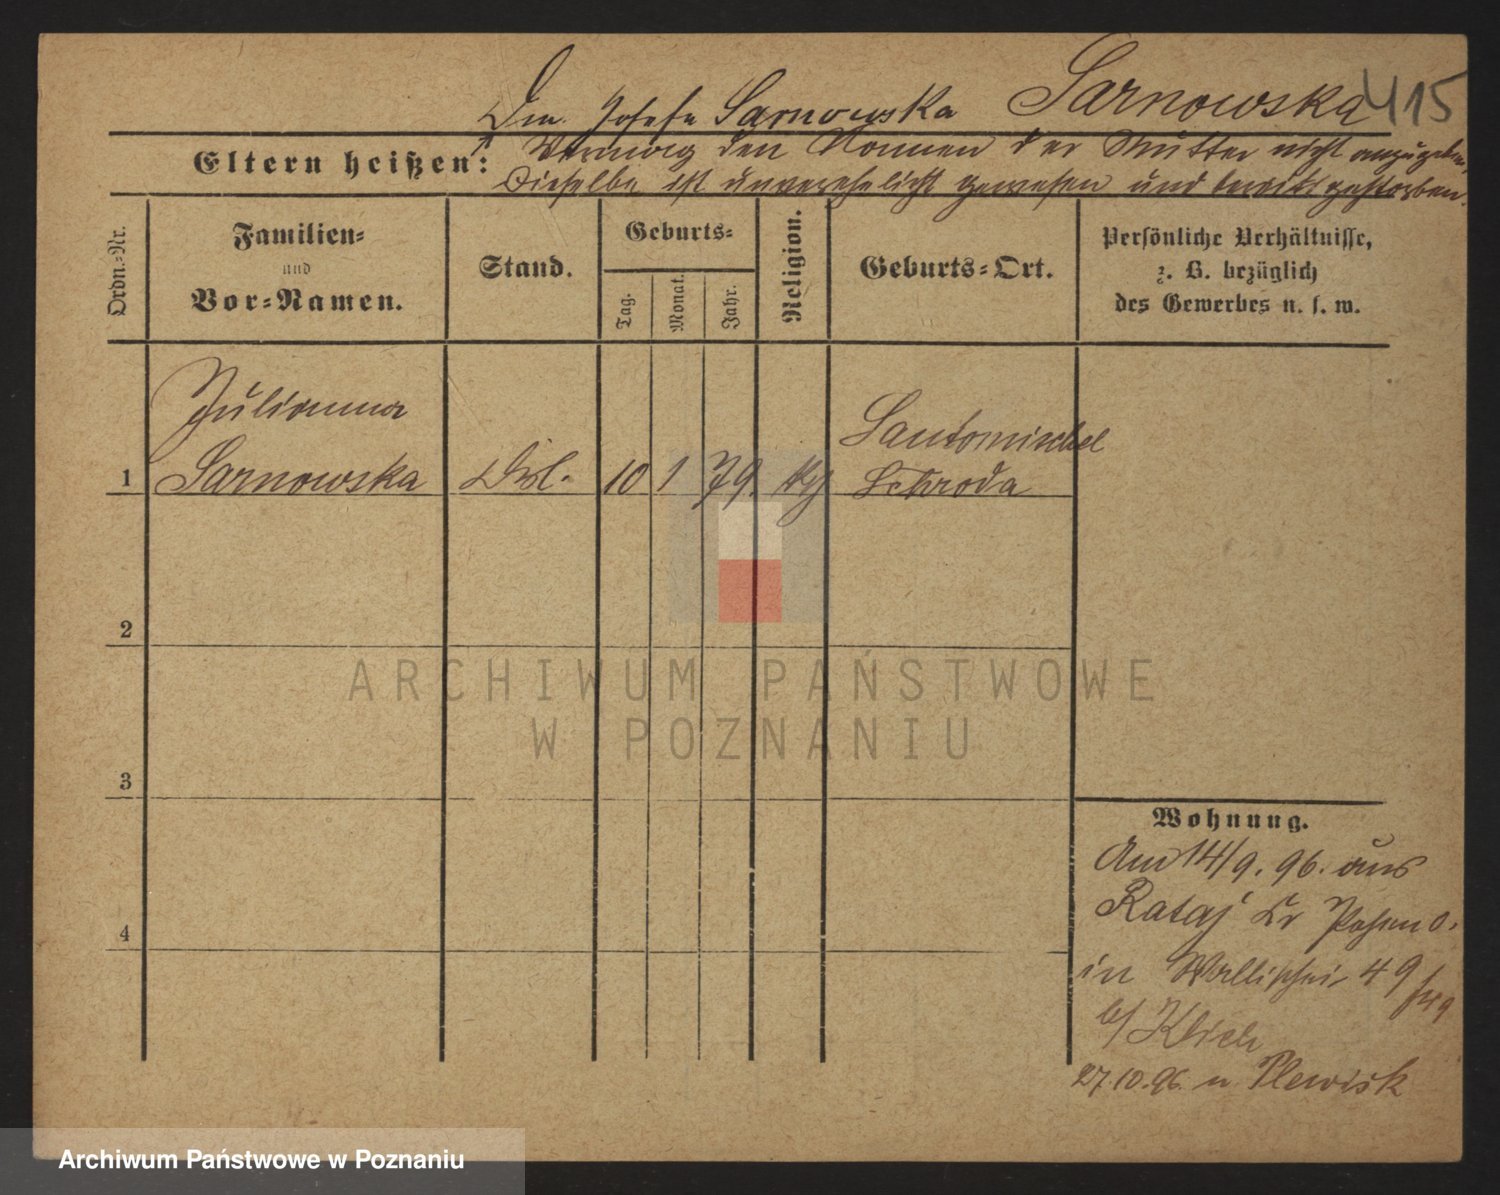 Sarnowska 415
Josefa Sarnowska
Eltern heißen: Vermag den Nammen der Mutter nicht anzugeben,
Dieselbe ist unverehelicht gewesen und bereits gestorben.
Ordn.=Nr.
Familien=
und
Vor=Namen.
Stand.
Geburts=
Tag.
Monat.
Jahr.
Religion.
Geburts=Ort.
Persönliche Verhältnisse,
z. B. bezüglich
des Gewerbes u. s. w.
Julianna
Santomischel
1 Sarnowska 10 1 79. Schroda
2
3
4
Wohnung.
Am 14/9. 96. aus
Rataj Kr Posen O.
in Wallischei 49
b/ Klich
27.10.96. n Plewisk
ARCHIWUM PAŃSTWOWE
W POZNANIU
Archiwum Państwowe w Poznaniu